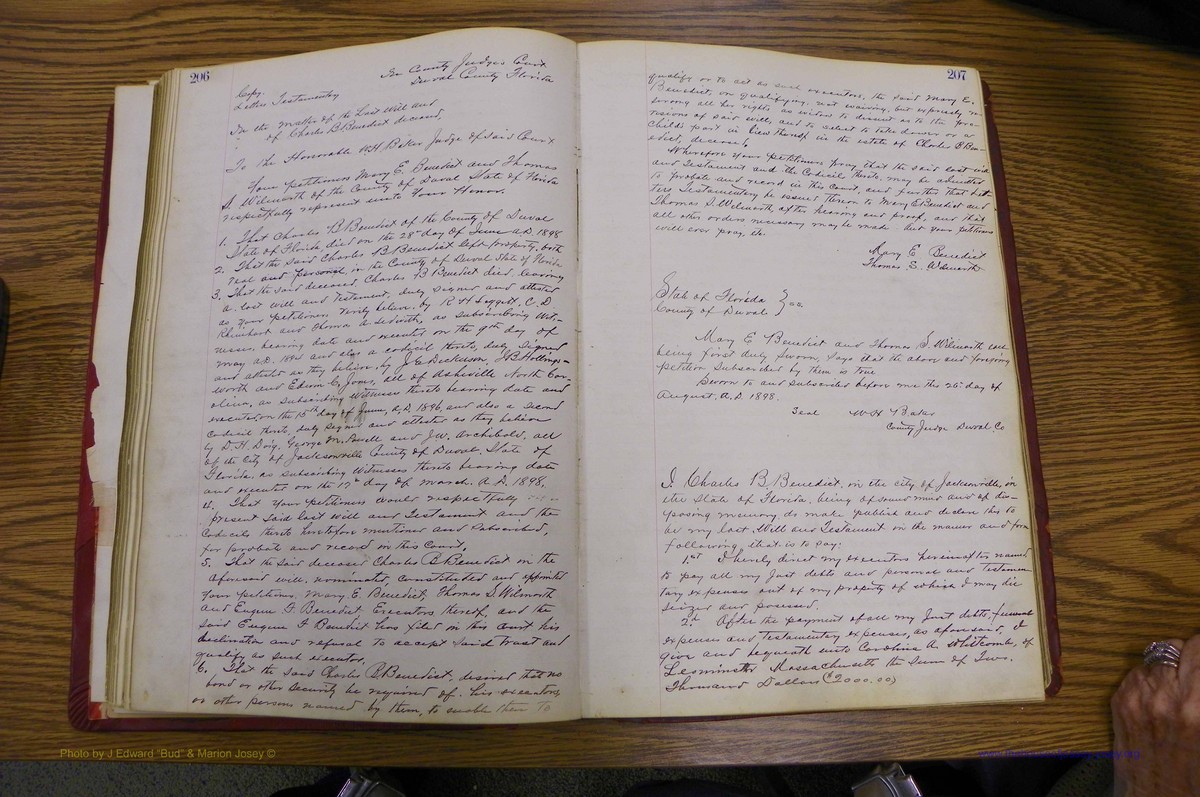 206
In County Judge's Court
Duval County Florida
Copy.
Letters Testamentary
In the Matter of the Last Will and
of Charles B Benedict deceased,
To the Honorable W.H. Baker Judge of said Court
Your petitioners Mary E. Benedict and Thomas
S. Wilmorth of the County of Duval State of Florida
respectfully represent unto Your Honor.
1. That Charles B. Benedict of the County of Duval
State of Florida died on the 28th day of June A.D. 1898
2. That the said Charles B Benedict left property, both
real and personal, in the County of Duval State of Florida
3. That the said deceased, Charles B Benedict died leaving
a last will and testament, duly signed and attested
as your petitioners verily believe, by R H Leggett, C. D
Rhinehart and as subscribing Wit-
nesses, bearing date and executed on the 9th day of
May A.D. 1894 and also a codicil thereto, duly signed
and attested as they believe, by J. E. Dickerson J B Hollings-
worth and Edwin C. Jones, all of Asheville North Car-
olina, as subscribing witnesses thereto bearing date and
executed on the 15th day of June, A.D. 1896, and also a second
codicil thereto, duly signed and attested as they believe
by D. H. Doig, George M. Buell and J.W. Archibald, all
of the City of Jacksonville County of Duval State of
Florida, as subscribing witnesses thereto bearing date
and executed on the 17th day of March. A.D. 1898,
4. That your petitioners would respectfully
present said last will and testament and the
Codicils thereto heretofore mentioned and subscribed,
for probate and record in this Court,
5. That the said deceased Charles B Benedict in the
aforesaid will, nominated, constituted and appointed
your petitioners, Mary E. Benedict, Thomas S. Wilmorth
and Eugene F. Benedict, Executors thereof, and the
said Eugene F. Benedict has filed in this court his
declination and refusal to accept said trust and
qualify as such executor,
6. That the said Charles B. Benedict, desired that no
bond or other security be required of his executors,
or other persons named by them, to enable them to
207
qualify or to act as such executors, the said Mary E.
Benedict, on qualifying, not waiving, but expressly re-
serving all her rights, as widow to dissent as to the pro-
visions of said will, and to elect to take dower or a
child's part in lieu thereof in the estate of Charles B Ben-
edict, deceased,
Wherefore your petitioners pray that the said last will
and Testament and the Codicil thereto, may be admitted
to probate and record in this Court, and further that Let-
ters Testamentary be issued thereon to Mary E Benedict and
Thomas S. Wilmorth after hearing and proof, and that
all other orders necessary may be made. And your petitioners
will ever pray, etc.
Mary E Benedict
Thomas S. Wilmorth
State of Florida } ss.
County of Duval
Mary E Benedict and Thomas S. Wilmorth each
being first duly sworn, says that the above and foregoing
petition subscribed by them is true
Sworn to and subscribed before me this 26th day of
August. A.D. 1898.
Seal W H Baker
County Judge Duval Co
I, Charles B. Benedict, in the city of Jacksonville, in
the State of Florida, being of sound mind and of dis-
posing memory do make publish and declare this to
be my last Will and Testament in the manner and form
following, that is to say:
1st I hereby direct my executors hereinafter named
to pay all my just debts and personal and testamen-
tary expenses out of my property of which I may die
seized and possessed.
2d After the payment of all my just debts, funeral
expenses and testamentary expenses, as aforesaid, I
give and bequeath unto Carolina A. Whitcombs, of
Leominster Massachusetts the sum of Two.
Thousand Dollars ($2000.00)
Photo by J Edward "Bud" & Marion Josey ©